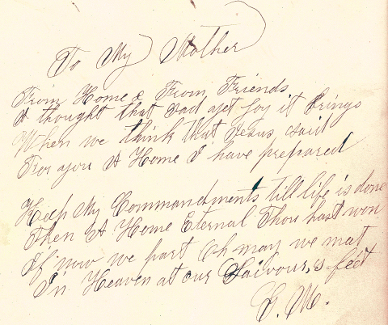 To My Mother
From Home & From Friends
A thought that sad yet joy it brings
When we think that Jesus said
For you A Home I have prepared
Keep My Commandments till life is done
Then A Home Eternal Thou hast won
If now we part Oh may we mat
In Heaven at our Saivour,s feet
L. M.